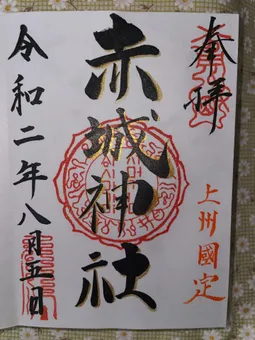 奉拝
上州國定
赤城神社
令和二年八月五日